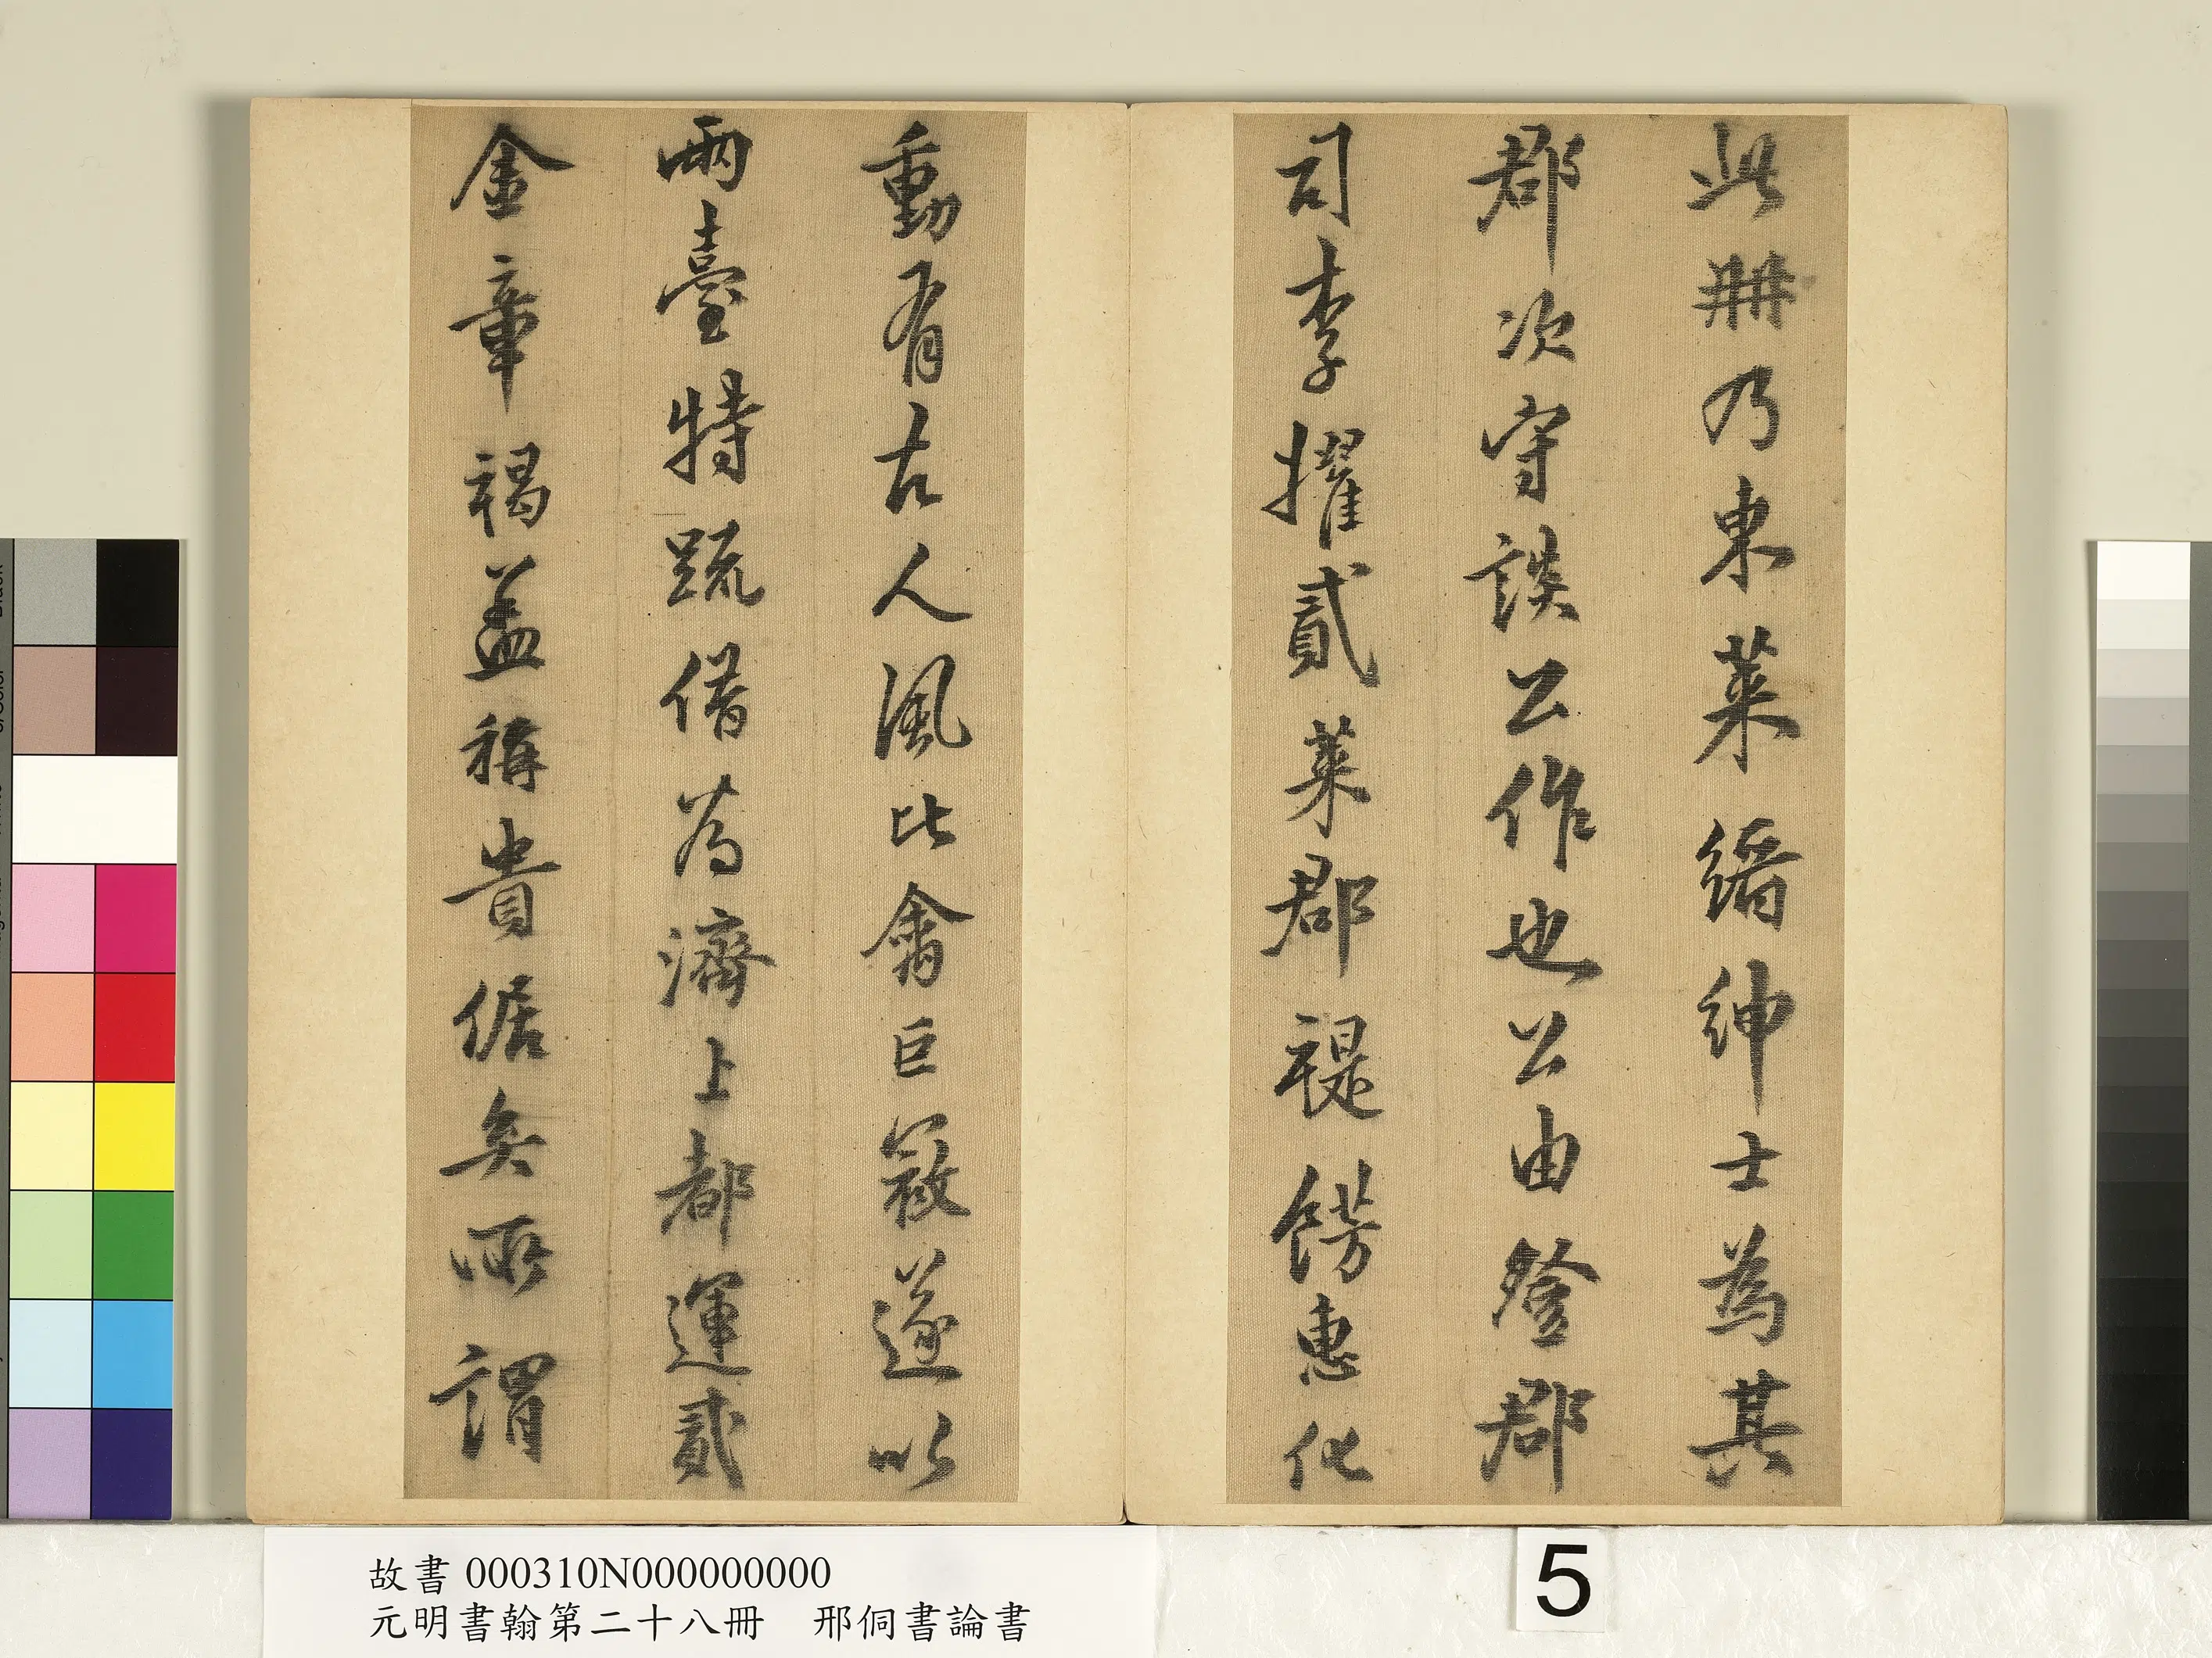 此冊乃東萊縉紳士為其
郡次守談公作也公由登郡
司李擢貳萊郡禔餝惠化
動有古人風比翕巨遂以
兩臺特疏借為濟上都運貳
金章褐蓋稱貴倨矣所謂
故書 000310N000000000
元明書翰第二十八冊 邢侗書論書
5